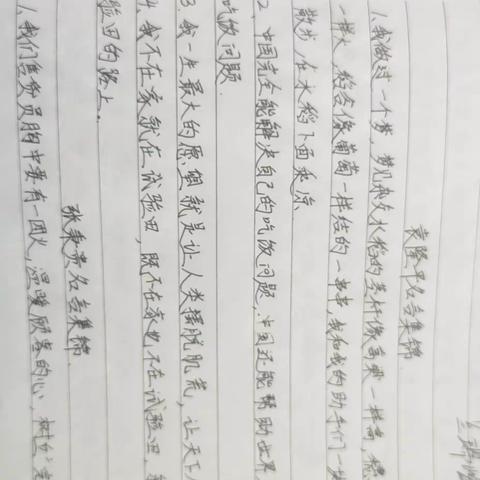 袁隆平名言集锦
1、我做过一个梦，梦见杂交水稻的茎秆像高粱一样高，穗
一样大，稻谷像葡萄一样结的一串串，我和我的助手们一块
散步，在水稻下面乘凉。
2、中国完全能解决自己的吃饭问题，中国还能帮助世界
吃饭问题。
3、我一生最大的愿望就是让人类摆脱饥荒，让天下
4、我不在家就在试验田，既不在家也不在试验田，
验田的路上。
张秉贵名言集锦
1、我们售货员胸中要有一团火，温暖顾客的心，树